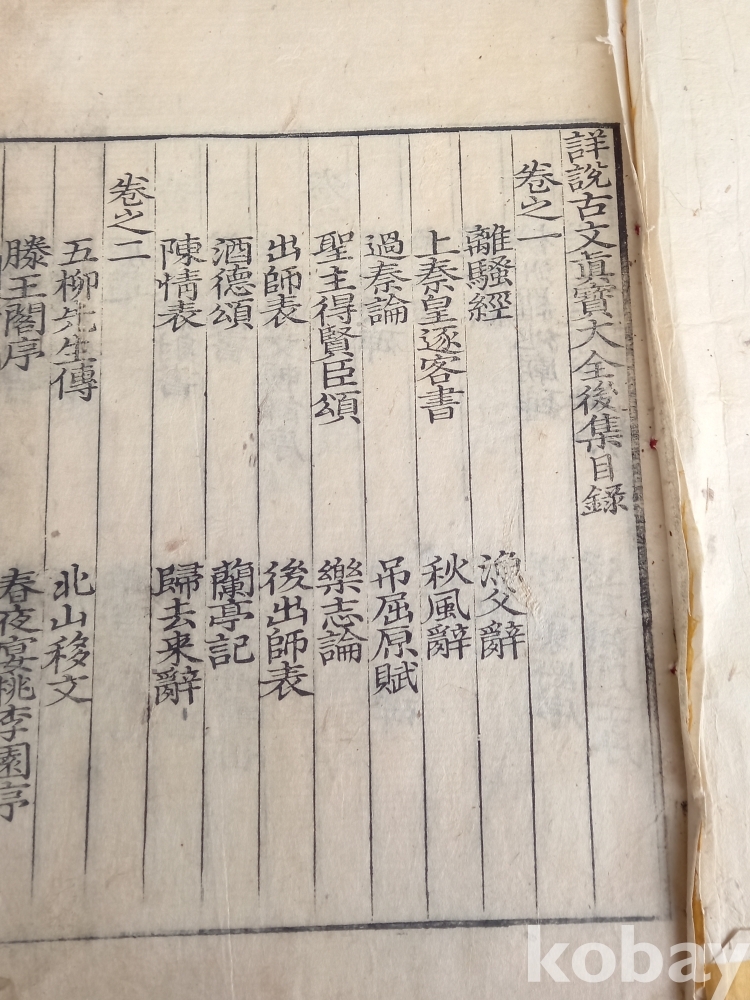 詳說古文眞寶大全後集目錄
卷之一
離騷經 漁父辭
上秦皇逐客書 秋風辭
過秦論 吊屈原賦
聖主得賢臣頌 樂志論
出師表 後出師表
酒德頌 蘭亭記
陳情表 歸去来辭
卷之二
五柳先生傳 北山移文
滕王閣序 春夜宴桃李園序
kobay